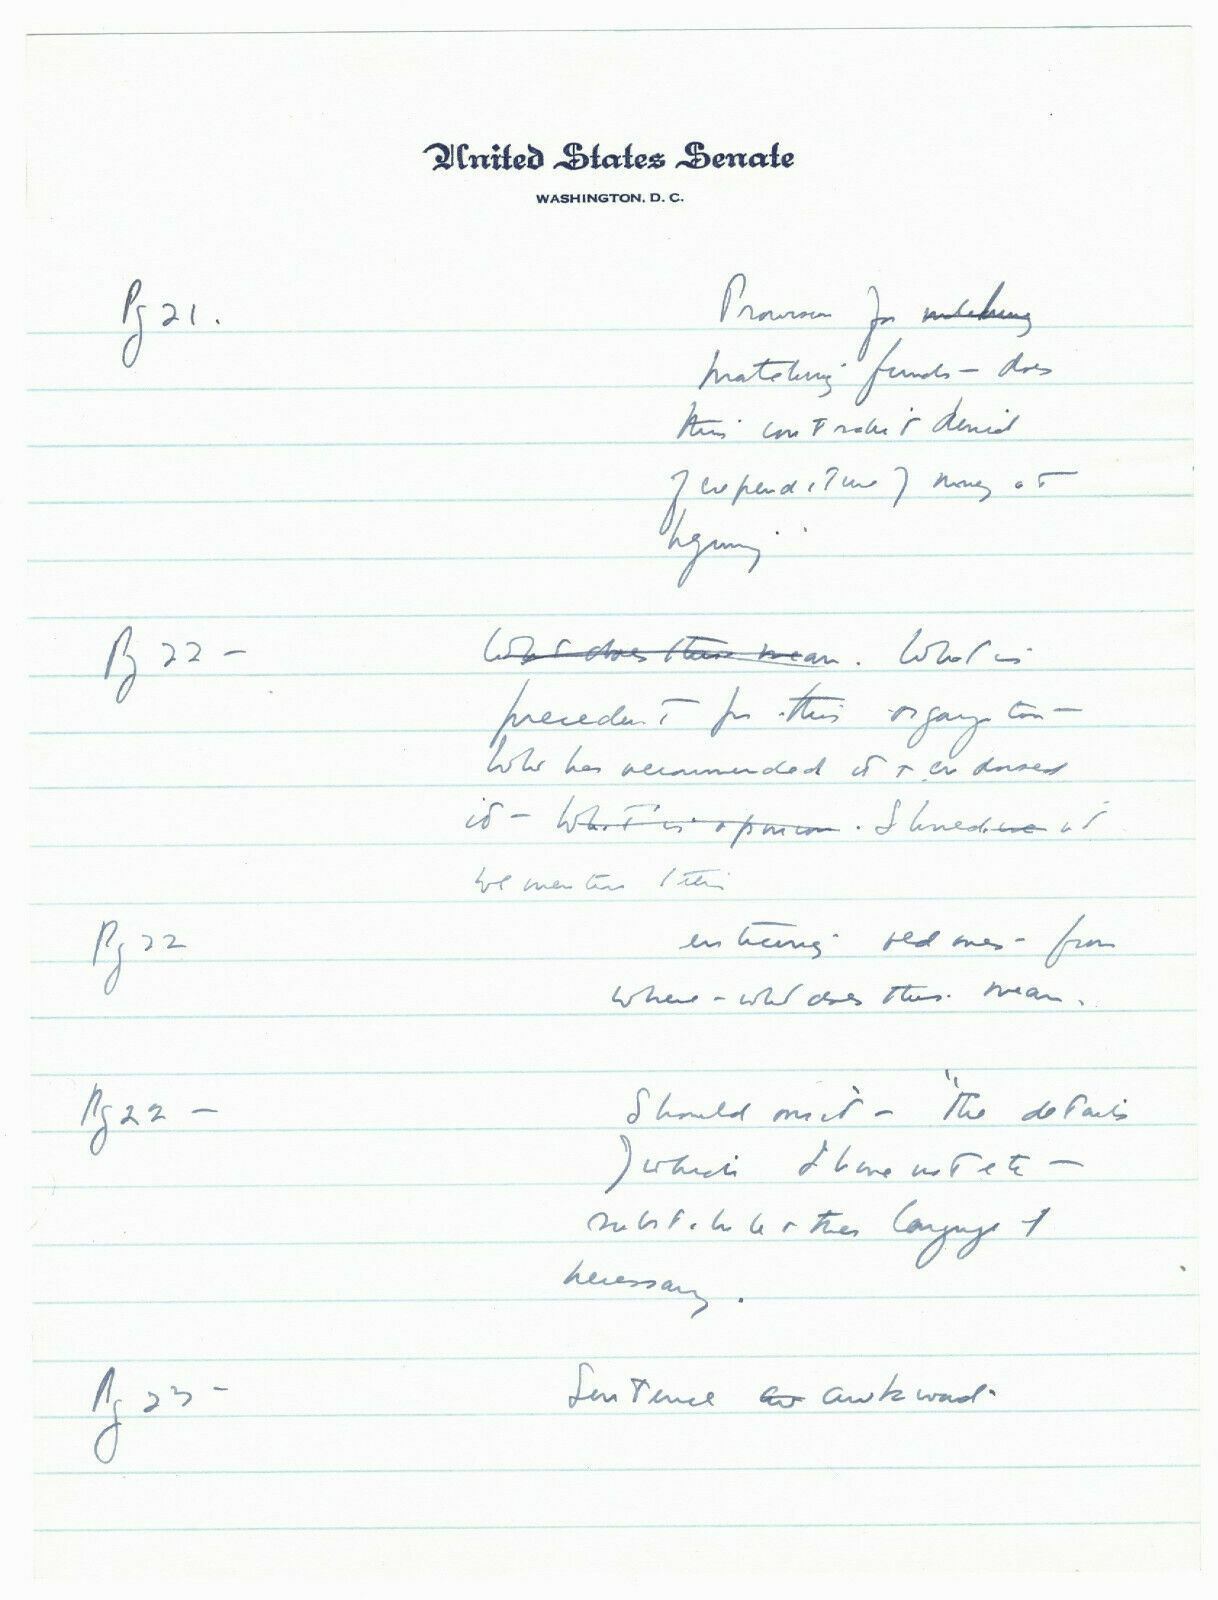 United States Senate
WASHINGTON, D. C.
Pg 21. Provision for matching
matching funds – does
this contradict denial
of expenditure of money at
beginning
Pg 22 – What does this mean. What is
precedent for this organization –
Who has recommended it + endorsed
it – What is opinion. Should it
be mentioned
Pg 22 enticing old ones – from
where – what does this mean.
Pg 22 – Should omit – "the details
of which I have not etc –
substitute other language if
necessary.
Pg 23 – Sentence aw awkward.